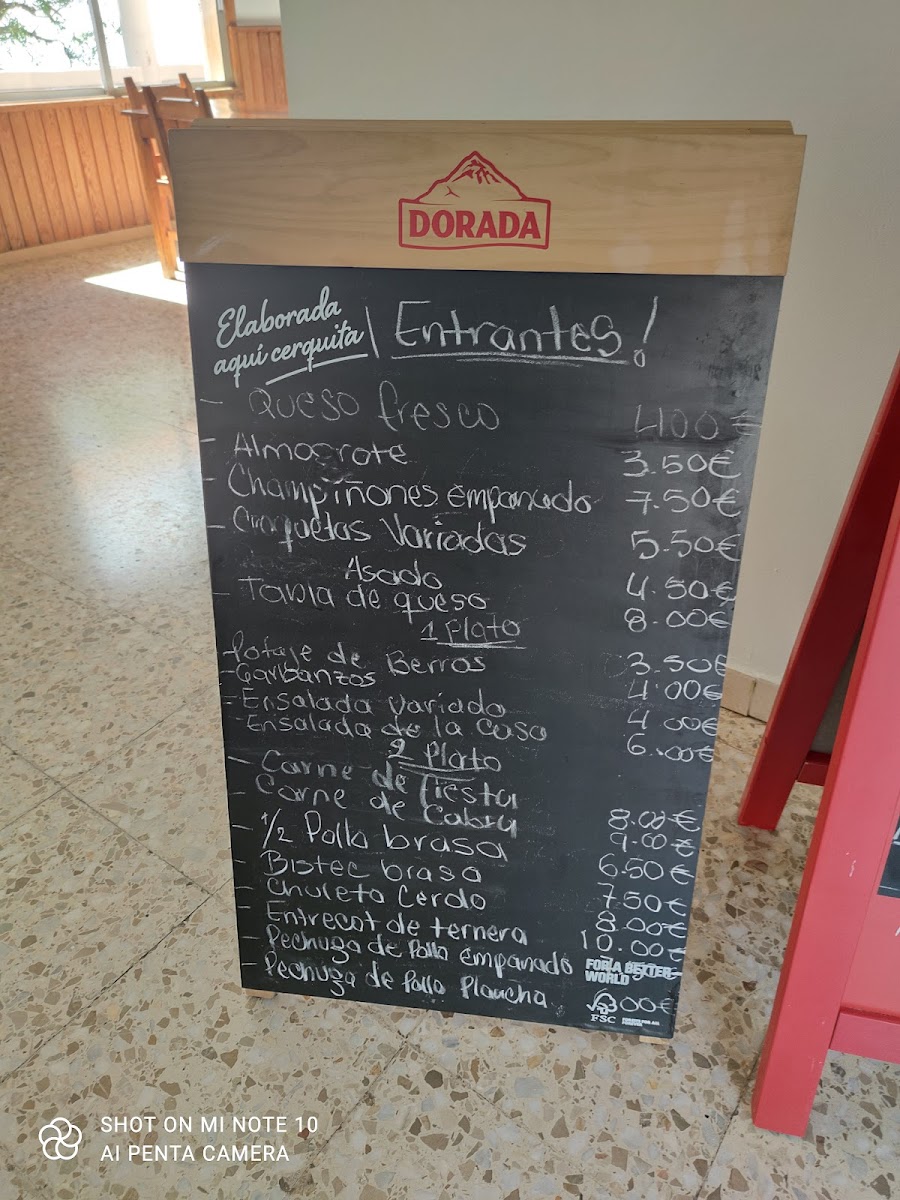 DORADA
Elaborada
aquí cerquita
Entrantes!
- Queso fresco 4.00€
- Almogrote 3.50€
- Champiñones empanado 7.50€
- Croquetas Variadas 5.50€
Asado 4.50€
- Tabla de queso 8.00€
1 Plato
- Potaje de Berros 3.50€
- Garbanzos 4.00€
- Ensalada variado 4.00€
- Ensalada de la Casa 6.00€
2 Plato
- Carne de fiesta 8.00€
- Carne de Cabra 9.00€
- 1/2 Pollo brasa 6.50€
- Bistec brasa 7.50€
- Chuleta Cerdo 8.00€
- Entrecot de ternera 10.00€
- Pechuga de Pollo empanado
- Pechuga de Pollo Plancha 00€
FOR A BETTER
WORLD
FSC
SHOT ON MI NOTE 10
AI PENTA CAMERA